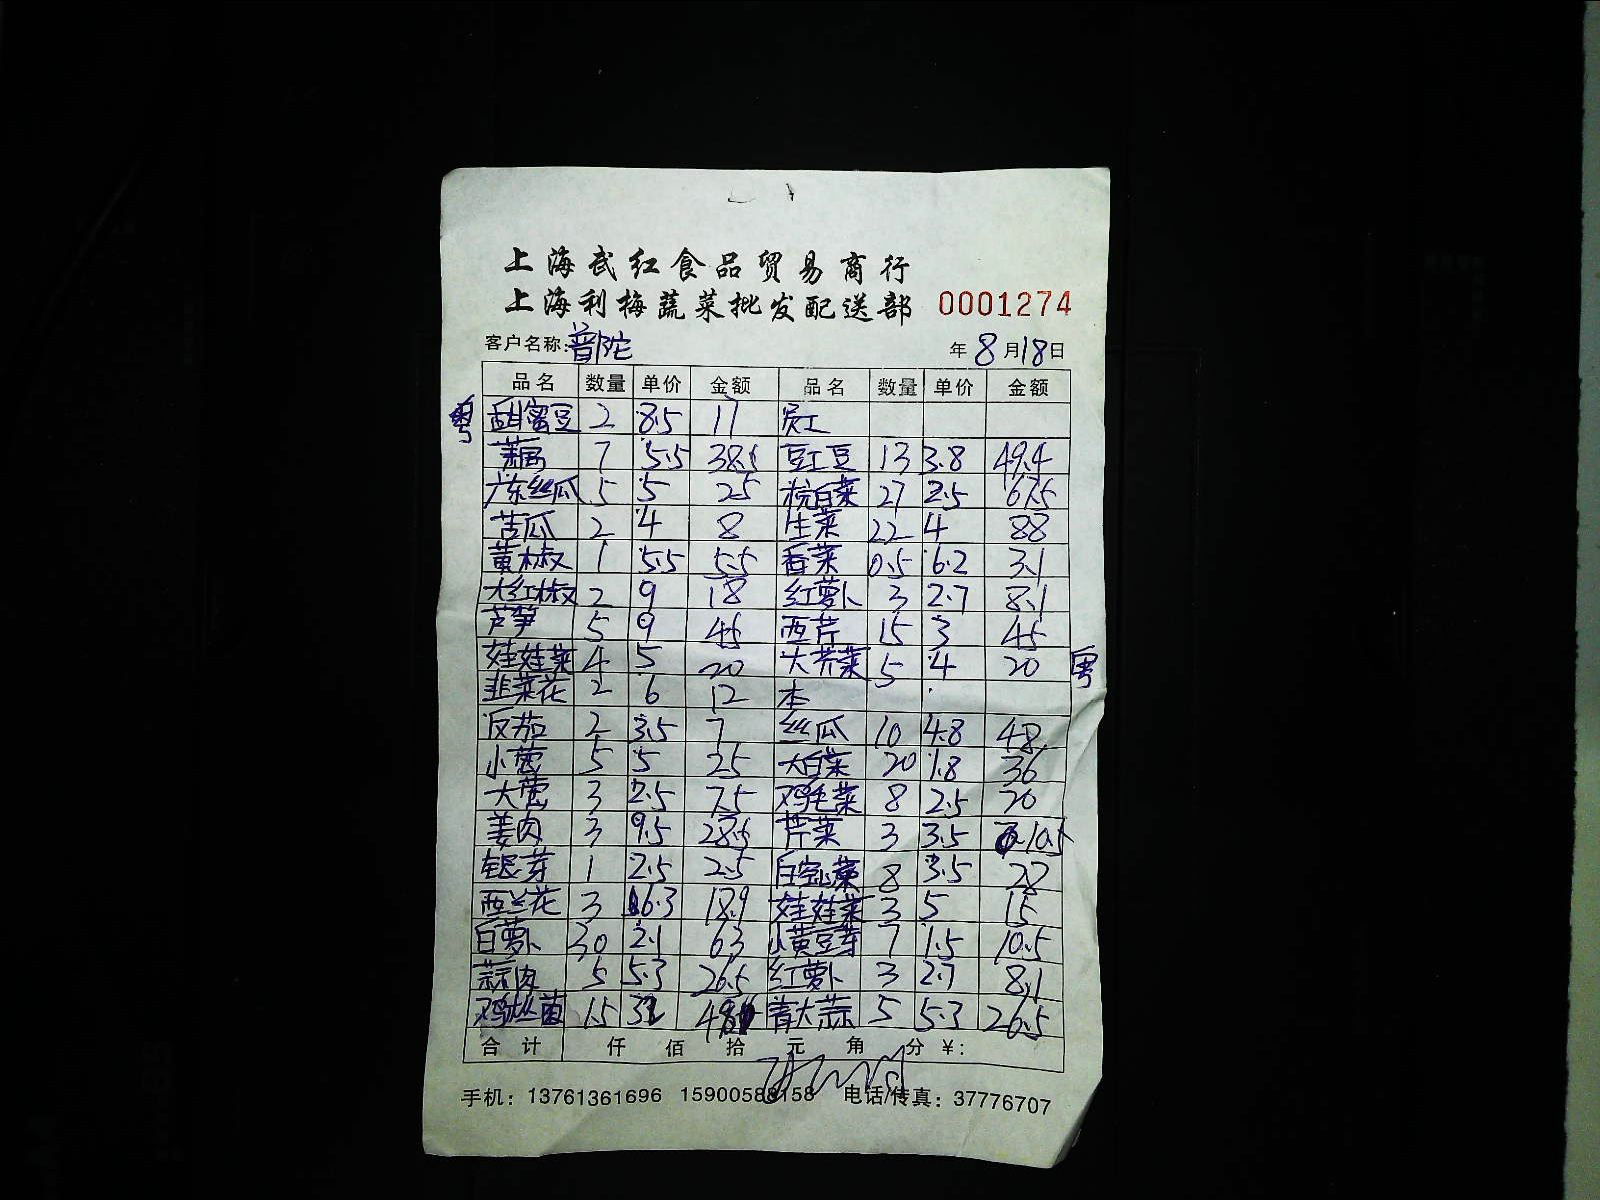 上海武红食品贸易商行
上海利梅蔬菜批发配送部 0001274
客户名称:普陀 年 8 月 18 日
品名 数量 单价 金额 品名 数量 单价 金额
粤 甜蜜豆 2 8.5 17 员工
莴 7 5.5 38.5 豇豆 13 3.8 49.4
广东丝瓜 5 5 25 杭白菜 27 2.5 67.5
苦瓜 2 4 8 生菜 22 4 88
黄椒 1 5.5 5.5 香菜 0.5 6.2 3.1
大红椒 2 9 18 红萝卜 3 2.7 8.1
芦笋 5 9 45 西芹 15 3 45
娃娃菜 4 5 20 大芥菜 5 4 20 粤
韭菜花 2 6 12 本
反茄 2 3.5 7 丝瓜 10 4.8 48
小葱 5 5 25 大白菜 20 1.8 36
大葱 3 2.5 7.5 鸡毛菜 8 2.5 20
姜肉 3 9.5 28.5 芹菜 3 3.5 10.5
银芽 1 2.5 2.5 白空心菜 8 3.5 28
西兰花 3 6.3 18.9 娃娃菜 3 5 15
白萝卜 30 2.1 63 小黄豆芽 7 1.5 10.5
蒜肉 5 5.3 26.5 红萝卜 3 2.7 8.1
鸡枞菌 1.5 32 48 青大蒜 5 5.3 26.5
合计 仟 佰 拾 元 角 分 ¥:
手机: 13761361696 15900588158 电话/传真: 37776707